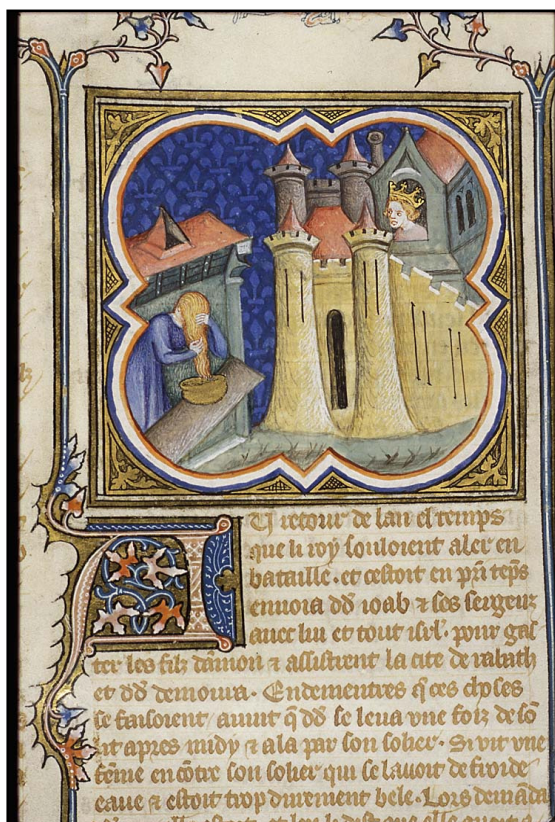 Au retour de lan el temps
que li roy souloient aler en
bataille. et cestoit en pri teps
enuoia dd ioab ⁊ ses sergeuz
auec lui et tout isrl. pour gas
ter les filz damon ⁊ assistrent la cite de rabath
et dd demoura. Endementres q̄ ces choses
se faisoient auint q̄ dd se leua vne foiz de sō
lit apres midy ⁊ ala par son solier. Si vit vne
fēme encōtre son solier qui se lauoit de froide
eaue ⁊ estoit trop durement bele. Lors demāda